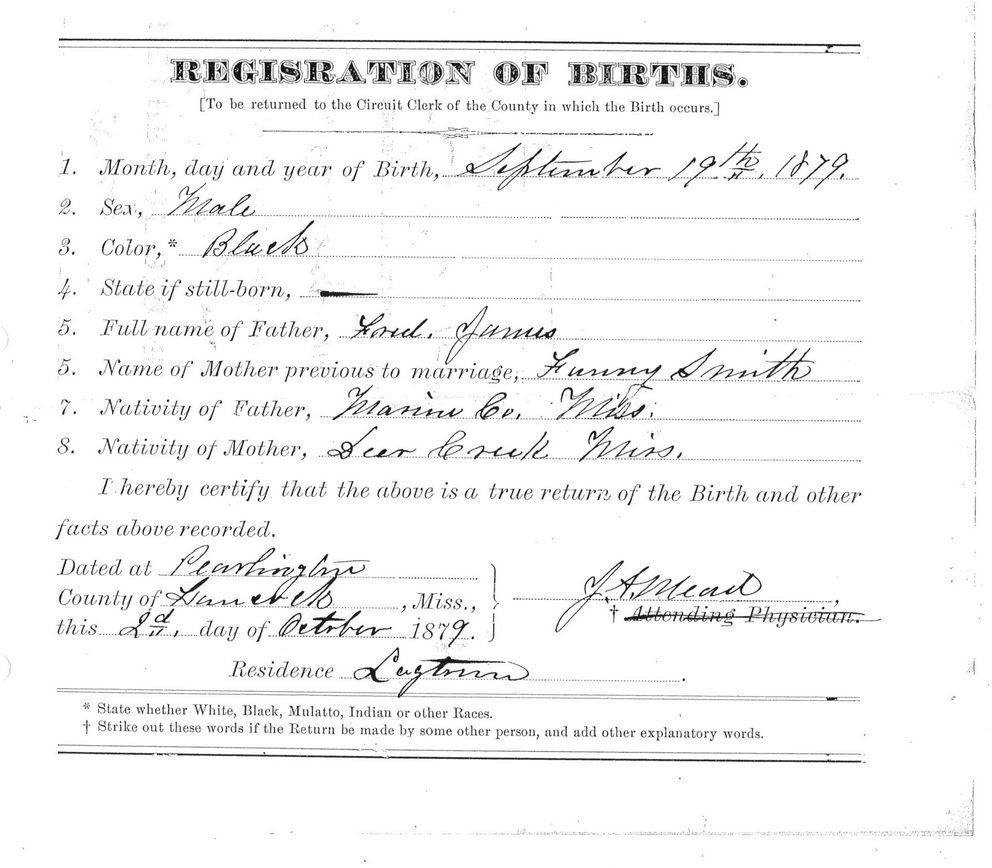 REGISRATION OF BIRTHS.
[To be returned to the Circuit Clerk of the County in which the Birth occurs.]
1. Month, day and year of Birth, September 19th, 1879.
2. Sex, Male
3. Color,* Black
4. State if still-born, —
5. Full name of Father, Fred. James
5. Name of Mother previous to marriage, Fanny Smith
7. Nativity of Father, Marion Co. Miss.
8. Nativity of Mother, Deer Creek Miss.
I hereby certify that the above is a true return of the Birth and other
facts above recorded.
Dated at Pearlington
County of Hancock, Miss.,
this 2d. day of October 1879.
J. A. Mead,
† Attending Physician.
Residence Logtown.
* State whether White, Black, Mulatto, Indian or other Races.
† Strike out these words if the Return be made by some other person, and add other explanatory words.